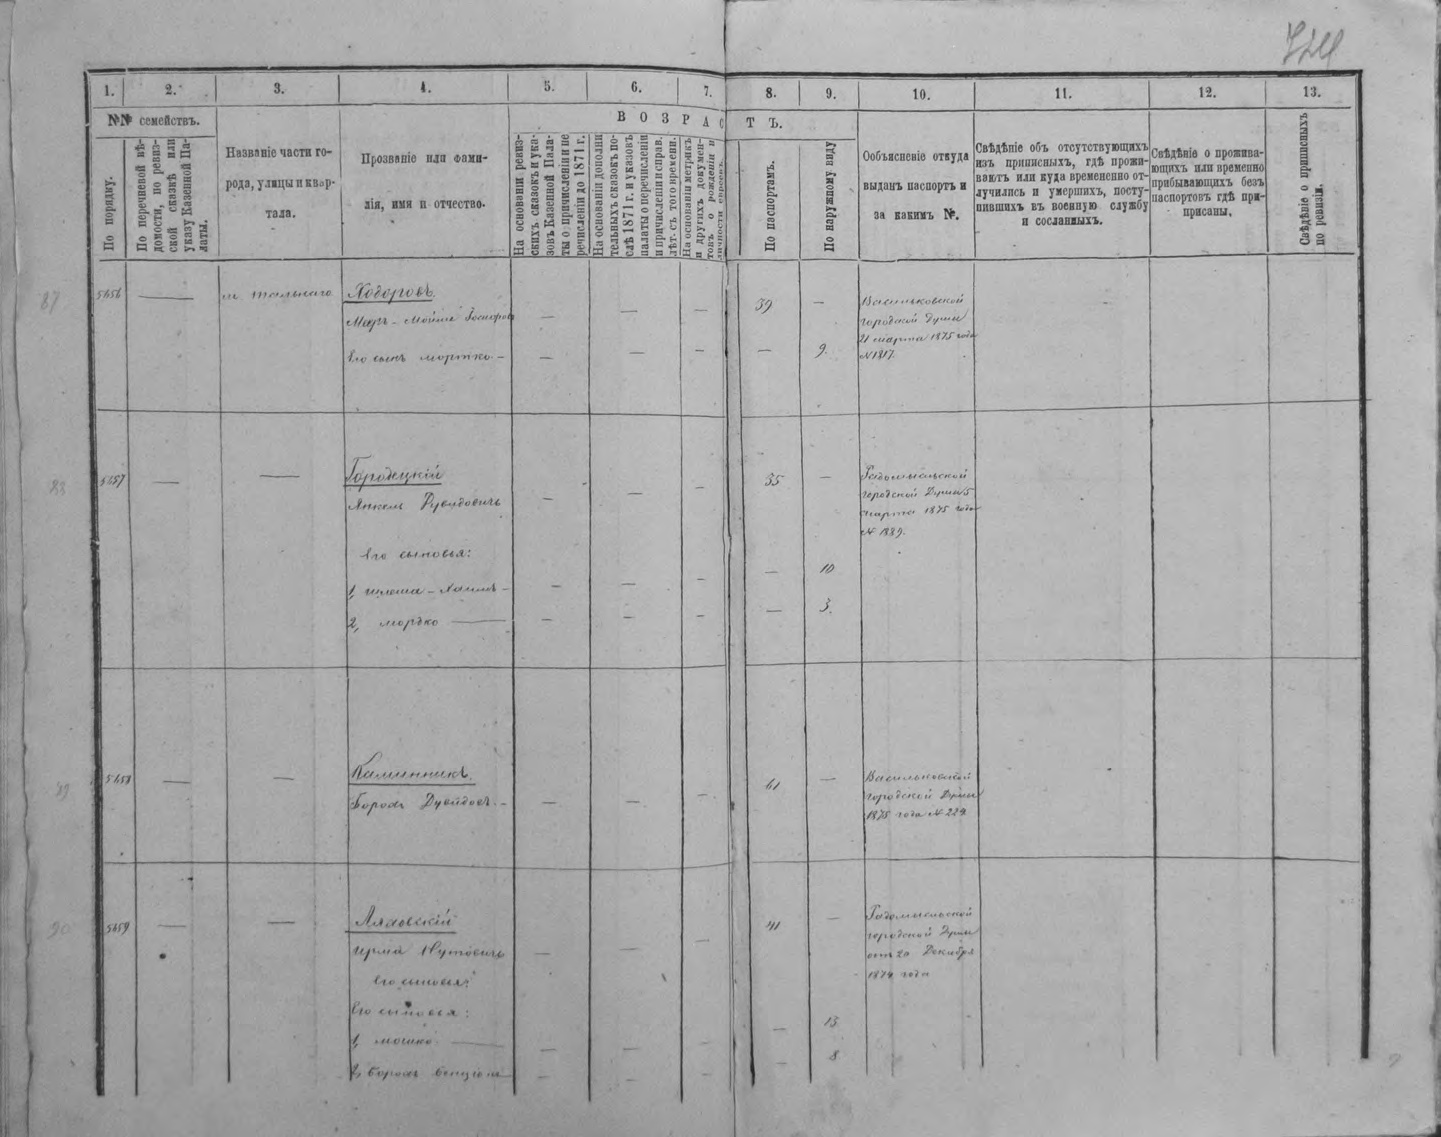 724
1. 2. 3. 4. 5. 6. 7. 8. 9. 10. 11. 12. 13.
№№ семействъ.
ВОЗРАСТЪ.
По порядку.
По перечневой вѣ-
домости, по ревиз-
ской сказкѣ или
указу Казенной Па-
латы.
Названіе части го-
рода, улицы и квар-
тала.
Прозваніе или фами-
лія, имя и отчество.
На основаніи ревиз-
скихъ сказокъ и ука-
зовъ Казенной Пала-
ты о причисленіи и пе
речисленіи до 1871 г.
На основаніи дополни
тельныхъ сказокъ по-
слѣ 1871 г. и указовъ
палаты о перечисленіи
и причисленіи и справ.
лѣт. съ того времени.
На основаніи метрикъ
и другихъ докумен-
товъ о рожденіи и
личности евреевъ.
По паспортамъ.
По наружному виду
Ообъясненіе откуда
выданъ паспортъ и
за какимъ №.
Свѣдѣніе объ отсутствующихъ
изъ приписныхъ, гдѣ прожи-
ваютъ или куда временно от-
лучились и умершихъ, посту-
пившихъ въ военную службу
и сосланныхъ.
Свѣдѣніе о прожива-
ющихъ или временно
прибывающихъ безъ
паспортовъ гдѣ при-
писаны.
Свѣдѣніе о приписныхъ
по ревизіи.
87 5656 — Ходоровъ
— — — 39 — Васильковской
городской Думы
21 марта 1875 года
№ 1817.
Его сынъ Мортко — — — — — 9.
88 5657 — — Городецкій
Янкель Рувидовичъ — — — 35 — Радомысльской
городской Думы 5
марта 1875 года
№ 1889.
Его сыновья:
1, Шлема-Хаимъ — — — — — 10
2, Мордко — — — — — 3.
89 5658 — — Калинникъ
Борохъ Дувидовъ — — — — 61 — Васильковской
городской Думы
1875 года № 229
90 5659 — —
— — — 41 — Радомысльской
городской Думы
отъ 20 Декабря
1874 года
Его сыновья:
Его сыновья:
1, Мошко — — — — — 13
2, Борохъ Бенціонъ — — — — 8